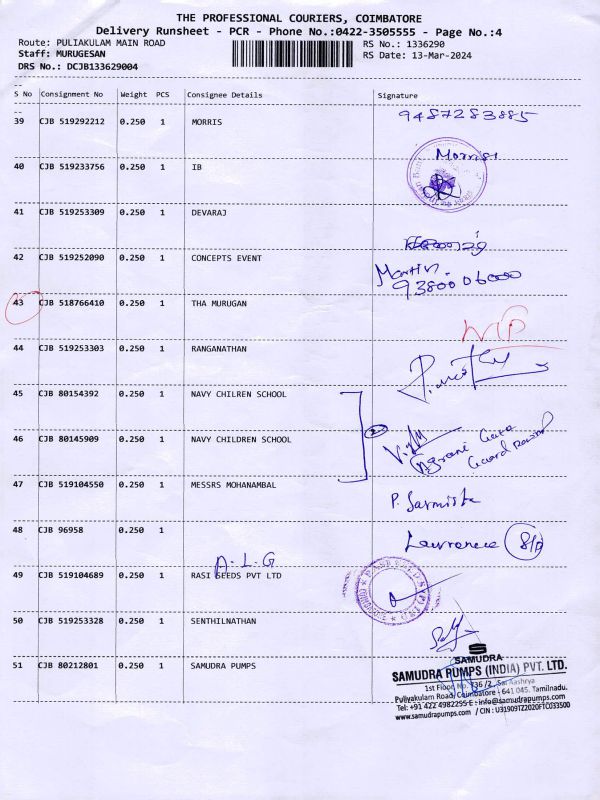 THE PROFESSIONAL COURIERS, COIMBATORE
Delivery Runsheet - PCR - Phone No.:0422-3505555 - Page No.:4
Route: PULIAKULAM MAIN ROAD
RS No.: 1336290
Staff: MURUGESAN
RS Date: 13-Mar-2024
DRS No.: DCJB133629004
S No Consignment No Weight PCS Consignee Details Signature
39 CJB 519292212 0.250 1 MORRIS 9487283885
Morris
40 CJB 519233756 0.250 1 IB
41 CJB 519253309 0.250 1 DEVARAJ
42 CJB 519252090 0.250 1 CONCEPTS EVENT Martin.
93800 06000
43 CJB 518766410 0.250 1 THA MURUGAN
44 CJB 519253303 0.250 1 RANGANATHAN
45 CJB 80154392 0.250 1 NAVY CHILREN SCHOOL
2
46 CJB 80145909 0.250 1 NAVY CHILDREN SCHOOL
47 CJB 519104550 0.250 1 MESSRS MOHANAMBAL P. Sarmista
48 CJB 96958 0.250 1 Lawrence S/P
A.L.G
49 CJB 519104689 0.250 1 RASI SEEDS PVT LTD
50 CJB 519253328 0.250 1 SENTHILNATHAN
51 CJB 80212801 0.250 1 SAMUDRA PUMPS
S
SAMUDRA
SAMUDRA PUMPS (INDIA) PVT. LTD.
1st Floor No. 736 /2, Sai Aashrya
Puliyakulam Road, Coimbatore - 641 045. Tamilnadu.
Tel: +91 422 4982295 E : info@samudrapumps.com
www.samudrapumps.com / CIN : U31909TZ2020FTC033500